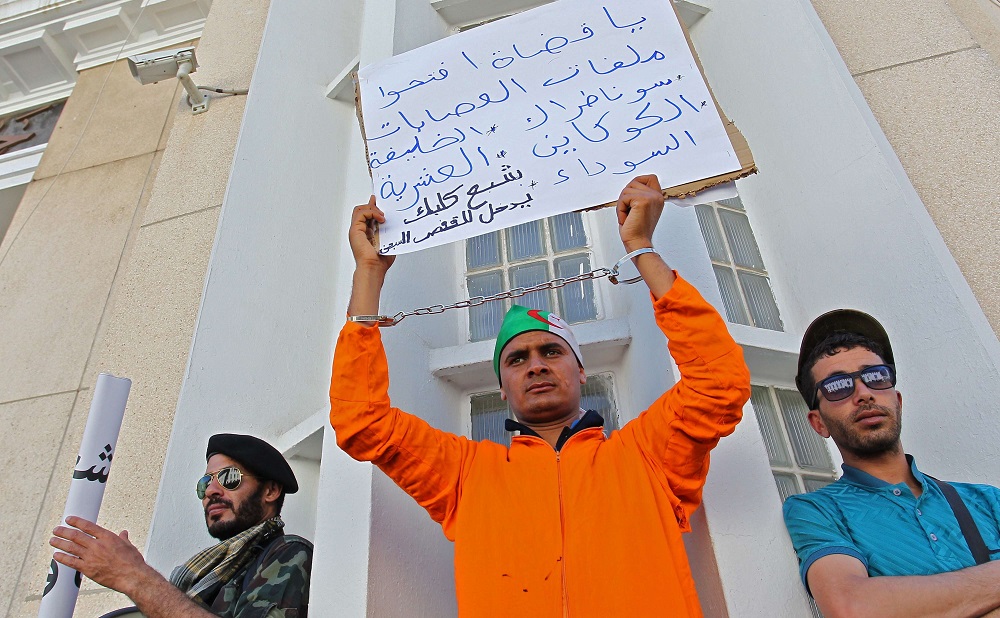 يا قضاة افتحوا
ملفات العصابات
.سوناطراك *الخليفة
.الكوكايين *العشرية
السوداء
*بشع كلبك
يدخل للقفص